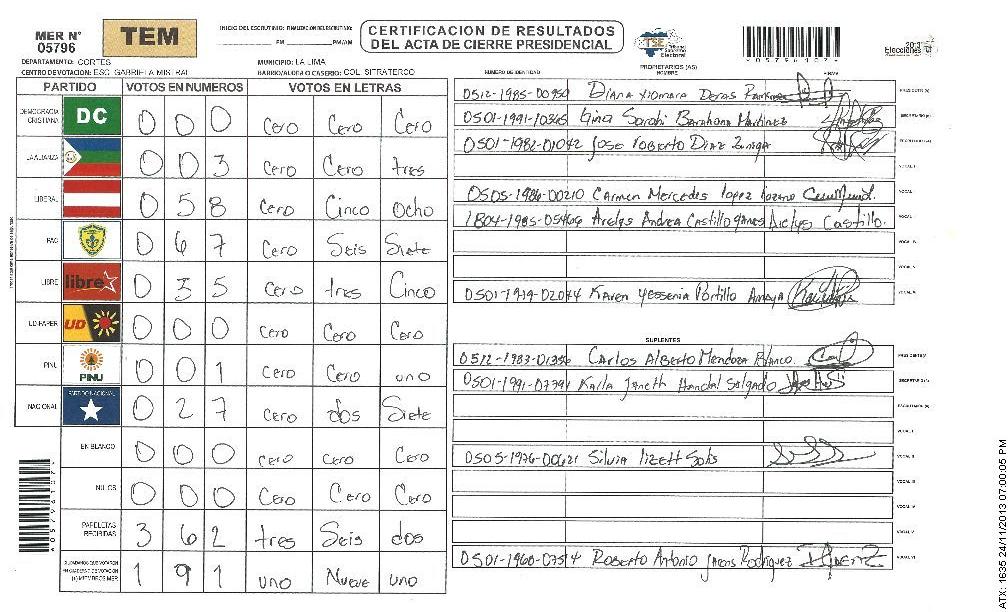 MER N°
05796
TEM
INICIO DEL ESCRUTINIO: FINALIZACION DEL ESCRUTINIO:
PM PM/AM
CERTIFICACION DE RESULTADOS
DEL ACTA DE CIERRE PRESIDENCIAL
TSE Tribunal Supremo Electoral
2013
Elecciones
DEPARTAMENTO: CORTES
MUNICIPIO: LA LIMA
CENTRO DE VOTACION: ESC. GABRIELA MISTRAL
BARRIO/ALDEA O CASERIO: COL. SITRATERCO
NUMERO DE IDENTIDAD
PROPIETARIOS (AS)
NOMBRE
FIRMA
PARTIDO VOTOS EN NUMEROS VOTOS EN LETRAS
DEMOCRACIA CRISTIANA DC 0 0 0 Cero Cero Cero
LA ALIANZA 0 0 3 Cero Cero tres
LIBERAL 0 5 8 Cero Cinco Ocho
PAC 0 6 7 Cero Seis Siete
LIBRE libre 0 3 5 Cero tres Cinco
UD-FAPER UD 0 0 0 Cero Cero Cero
PINU PINU 0 0 1 Cero Cero uno
NACIONAL PARTIDO NACIONAL 0 2 7 Cero dos Siete
EN BLANCO 0 0 0 Cero Cero Cero
NULOS 0 0 0 Cero Cero Cero
PAPELETAS RECIBIDAS 3 6 2 tres Seis dos
1 9 1 uno Nueve uno
0512-1985-00959 Diana Xiomara Deras PRESIDENTE (A)
0501-1991-10365 Gina Sarahi Barahona Martinez SECRETARIO (A)
0501-1982-01042 Jose Roberto Diaz Zuniga ESCRUTADOR (A)
VOCAL I
0505-1986-00210 Carmen Mercedes lopez VOCAL
1804-1985-05466 Arelys Andrea Castillo Arelys Castillo. VOCAL
VOCAL IV
VOCAL V
0501-1979-02044 Karen Yessenia Portillo Amaya VOCAL VI
SUPLENTES
0512-1983-01356 Carlos Alberto Mendoza Blanco. PRESIDENTE (A)
0501-1991-07791 Karla Janeth Handal Salgado SECRETARIO (A)
ESCRUTADOR (A)
VOCAL I
0505-1976-00621 Silvia lizett Solis VOCAL II
VOCAL III
VOCAL IV
VOCAL V
0501-1960-07514 Roberto Antonio Rodriguez VOCAL VI
ATX: 1635 24/11/2013 07:00:05 PM